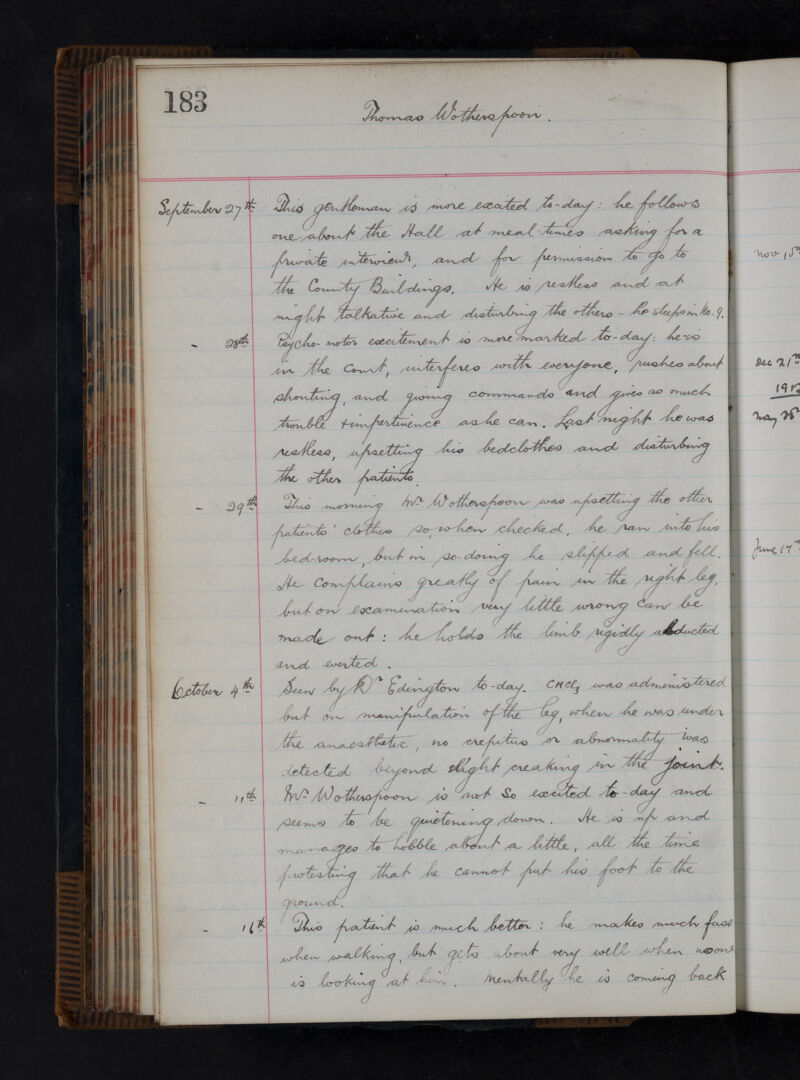 183
Thomas Wotherspoon.
September 27th This gentleman is more excited to-day: he follows
one about the Hall at meal-times asking for a
private interview, and for permission to go to
the County Buildings. He is restless and at
night talkative and disturbing the others - he sleeps in No. 9.
- 28th Psycho-motor excitement is more marked to-day: he is
in the Court, interferes with everyone, rushes about
shouting, and giving commands and gives as much
trouble & impertinence as he can. Last night he was
restless, upsetting his bedclothes and disturbing
the other patients.
- 29th This morning Mr Wotherspoon was upsetting the other
patients' clothes so, when checked, he ran into his
bed-room, but in so-doing he slipped and fell.
He complains greatly of pain in the right leg,
but on examination very little wrong can be
made out: he holds the limb rigidly abducted
and everted.
October 4th Seen by Dr Edington to-day. CHCl3 was administered
but on manipulation of the leg, when he was under
the anaesthetic, no crepitus or abnormality was
detected beyond slight creaking in the joint.
- 11th Mr Wotherspoon is not so excited to-day and
seems to be quietening down. He is up and
manages to hobble about a little, all the time
protesting that he cannot put his foot to the
ground.
- 16th This patient is much better: he makes much fuss
when walking, but gets about very well when no one
is looking at him. Mentally he is coming back
Nov
Dec 21st
191
May 28
June 17